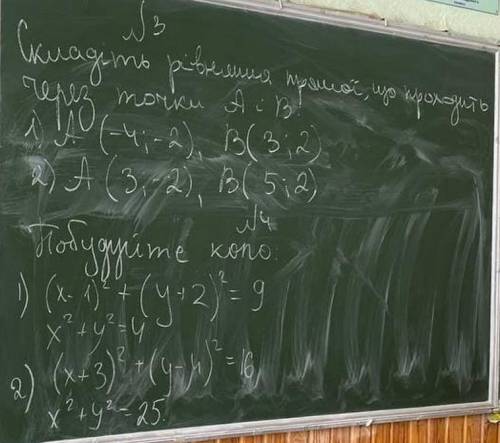 №3
Складіть рівняння прямої, що проходить
через точки А і В:
1) А (-4; -2), В(3; 2)
2) А (3; -2), В(5; 2)
№4
Побудуйте коло:
1) (x-1)² + (y+2)² = 9
x²+y²=4
2) (x+3)² + (y-4)² = 16
x²+y² = 25.